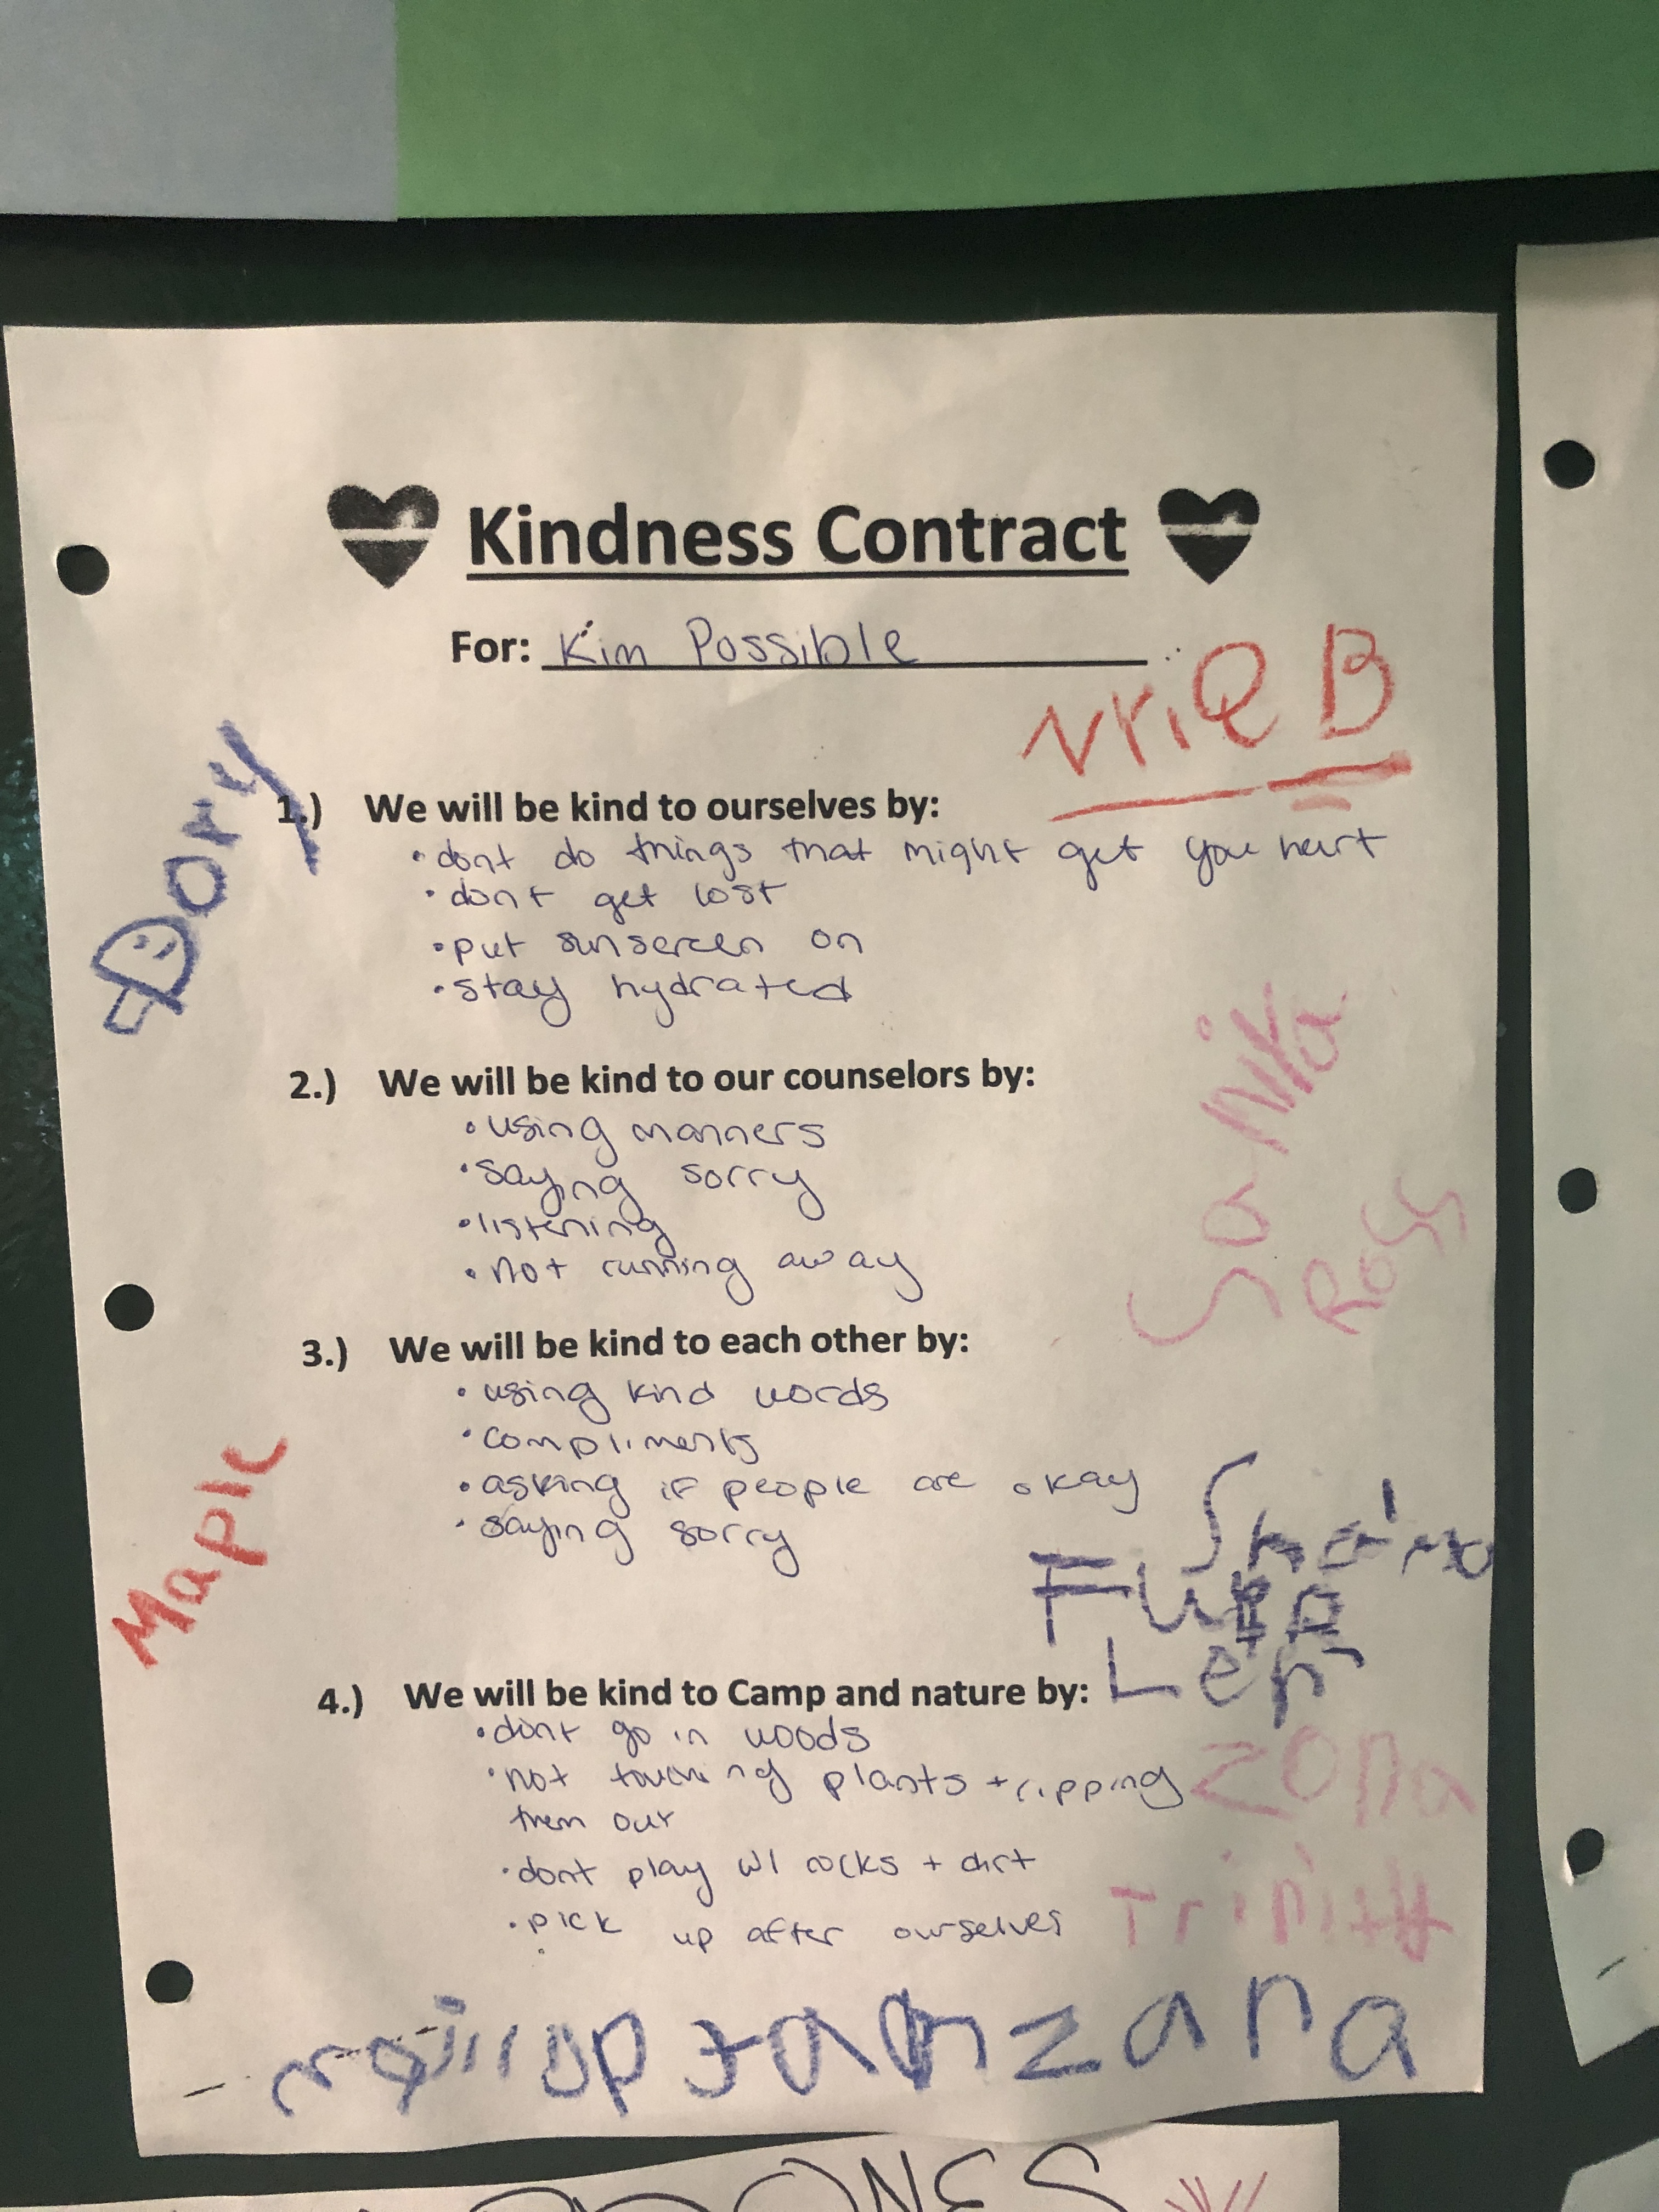 Kindness Contract
For: Kim Possible
Dory
1.) We will be kind to ourselves by:
• dont do things that might get you hurt
• dont get lost
• put sunscreen on
• stay hydrated
2.) We will be kind to our counselors by:
• using manners
• saying sorry
• listening
• not running away
Ross
3.) We will be kind to each other by:
• using kind words
• compliments
• asking if people are okay
• saying sorry
Maple
4.) We will be kind to Camp and nature by:
• dont go in woods
• not touching plants + ripping
them out
• dont play w/ rocks + dirt
• pick up after ourselves
zona
Trinity
zana